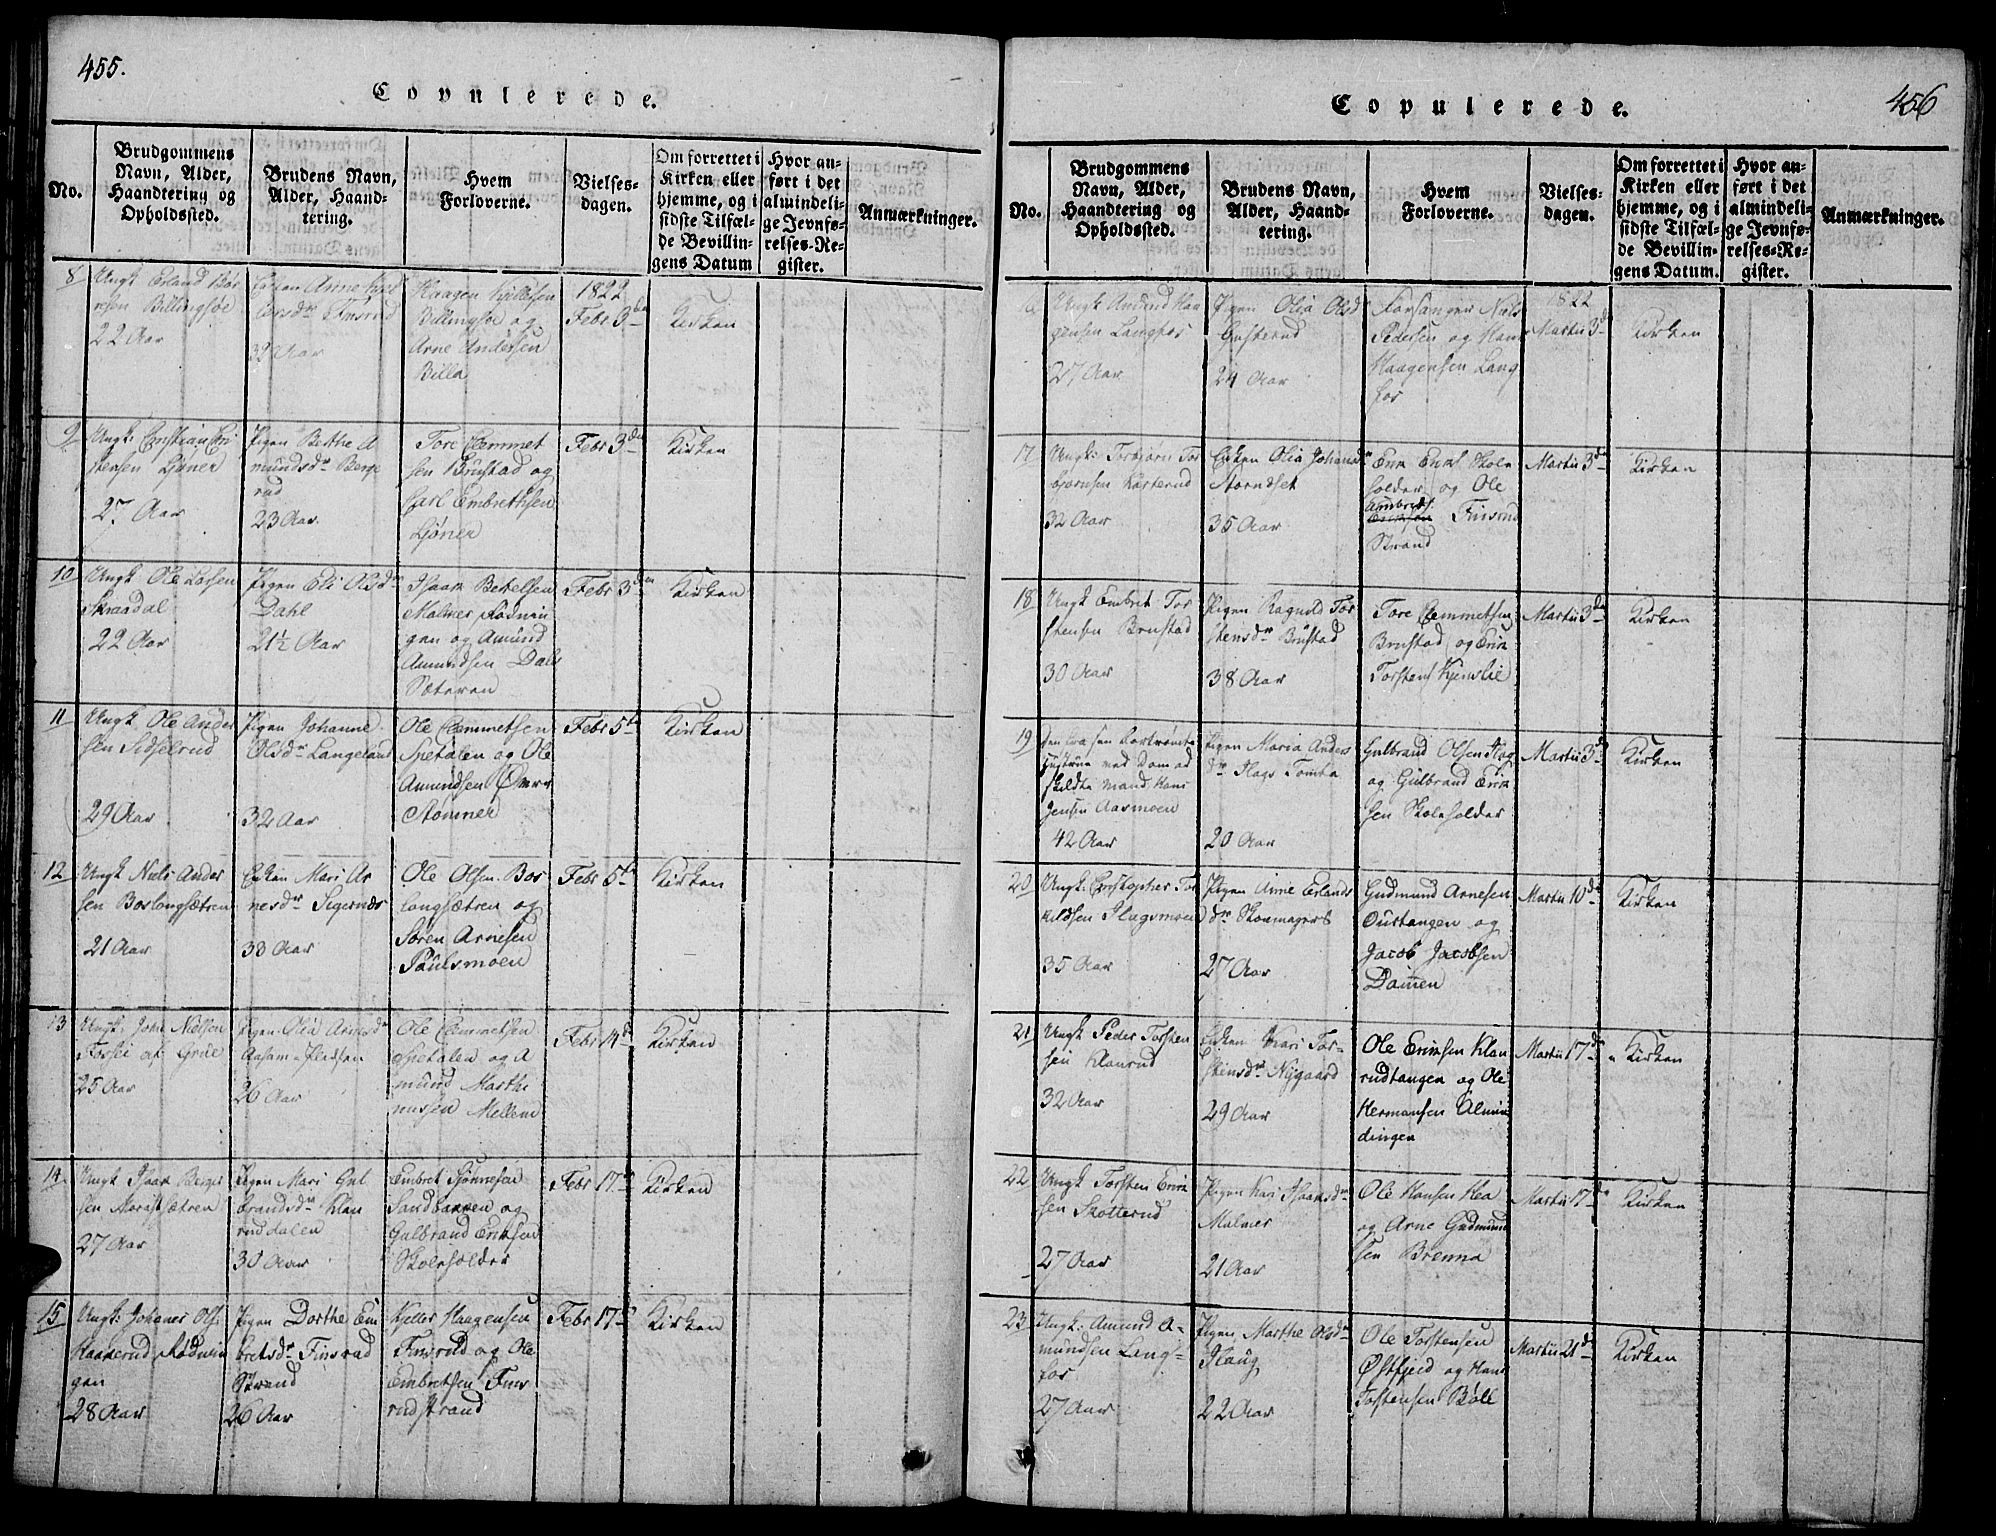 455.
Copulerede.
No.
Brudgommens
Navn, Alder,
Haandtering og
Opholdssted.
Brudens Navn,
Alder, Haand-
tering.
Hvem
Forloverne.
Vielses-
dagen.
Om forrettet i
Kirken eller
hjemme, og i
sidste Tilfæl-
de Bevillin-
gens Datum
Hvor an-
ført i det
almindeli-
ge Jevnfø-
relses-Re-
gister.
Anmærkninger.
8
Ungk Erland
Billingsøe
22 Aar
Enken Anne
Finsrud
32 Aar
Haagen Kjellesen
Billingsøe og
Arne Andersen
Billa
1822
Febr 3die
Kirken
9
Ungk: Cristian Cri
stensen Sjøner
27 Aar
Pigen Berthe A
mundsdr Berge
rud
23 Aar
Tore Clemmet
sen Brustad og
Carl Embrethsen
Sjøner
Febr 3die
Kirken
10
Ungk Ole Larsen
Skraadal
22 Aar
Pigen Eli Olsdr
Dahl
21½ Aar
Isaak Bertelsen
Malmer Rødnin
gen og Amund
Amundsen Dals
Sæteren
Febr 3den
Kirken
11
Ungk Ole Ander
sen Sidselrud
29 Aar
Pigen Johanne
Olsdr Langeland
32 Aar
Ole Clemmetsen
Spetalen og Ole
Amundsen Øvre
Stømner
Febr 5te
Kirken
12
Ungk Niels Ander
sen Boslongsætren
21 Aar
Enken Mari Ar
nesdr Sigernæs
30 Aar
Ole Olsen Bos
longsætren og
Søren Arnesen
Paulsmoen
Febr 5te
Kirken
13
Ungk: John Nielsen
af Grue
25 Aar
Pigen Olia Arnesdr
26 Aar
Ole Clemmetsen
Spetalen og A
mund Marthi
nussen Mellem
Febr 14de
Kirken
14
Ungk Isaak Berger
sen Morastsætren
27 Aar
Pigen Mari Gul
brandsdr Klan
ruddalen
30 Aar
Embret Sjønnesen
Sandbakken og
Gulbrand Eriksen
Skoleholder
Febr 17de
Kirken
15
Ungk: Johanes Ols:
Haakerud Rødnin
gen
28 Aar
Pigen Dorthe Em
bretsdr Finsrud
Strand
26 Aar
Kjeller Haagensen
Finsrud og Ole
Embretsen Fins
rudstrand
Febr 17de
Kirken
456
Copulerede.
No.
Brudgommens
Navn, Alder,
Haandtering og
Opholdssted.
Brudens Navn,
Alder, Haand-
tering.
Hvem
Forloverne.
Vielses-
dagen.
Om forrettet i
Kirken eller
hjemme, og i
sidste Tilfæl-
de Bevillin-
gens Datum.
Hvor an-
ført i det
almindeli-
ge Jevnfø-
relses-Re-
gister.
Anmærkninger.
Ungk Amund Haa
gensen Langfos
27 Aar
Pigen Olia Olsd
Gusterud
24 Aar
Forsanger Niels
Pedersen og Hans
Haagensen Lang
fos
1822
Martii 3de
Kirken
17
Ungk: Torbjørn Tor
bjørnsen Karterud
32 Aar
Enken Olia Johanesdr
Storndset
35 Aar
Erik Eriks Skole
holder og Ole
Embreths Finsrud
Strand
Martii 3de
Kirken
18
Ungk Embret Tor
stensen Brustad
30 Aar
Pigen Ragnild Tor
stensdr Brustad
38 Aar
Tore Clemmetsen
Brustad og Erik
Torstens Kjenslie
Martii 3de
Kirken
19
ved Dom ad
skildte mand Hans
Jensen Aasmoen
42 Aar
Pigen Maria Anders
dr Flags Tomta
20 Aar
Gulbrand Olsen Flag
og Gulbrand Erik
sen Skoleholder
Martii 3de
Kirken
20
Ungk: Cristopher Tor
kildsen Flagsmoen
35 Aar
Pigen Anne Erlands
dr Skomagers
27 Aar
Gudmund Arnesen
Oustangen og
Jacob Jacobsen
Damen
Martii 10de
Kirken
21
Ungk Peder Torsten
sen Klanrud
32 Aar
Enken Kari Tor-
stensdr Nygaard
29 Aar
Ole Eriksen Klan
rudtangen og Ole
Hermansen Almin
dingen
Martii 17de
Kirken
22
Ungk Torsten Erik
sen Skotterud
27 Aar
Pigen Kari Isaaksdr
Malmer
21 Aar
Ole Hansen Hea
og Arne Gudmund
sen Brenna
Martii 17de
Kirken
23
Ungk: Amund A-
mundsen Lang-
fos
27 Aar
Pigen Marthe Olsdr
Haug
22 Aar
Ole Torstensen
Østfjeld og Hans
Torstensen Bøle
Martii 21de
Kirken